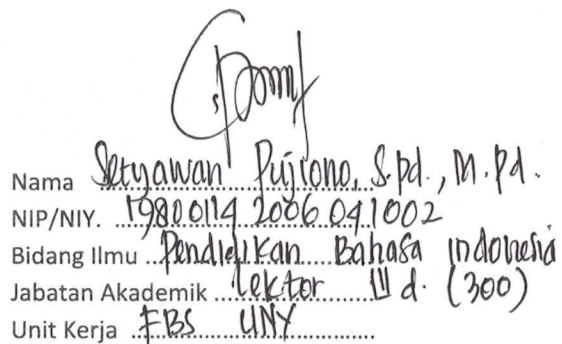 Nama Setyawan Pujiono, S.pd., M.Pd.
NIP/NIY. 19800114 2006 041002
Bidang Ilmu Pendidikan Bahasa Indonesia
Jabatan Akademik Lektor III d. (300)
Unit Kerja FBS UNY